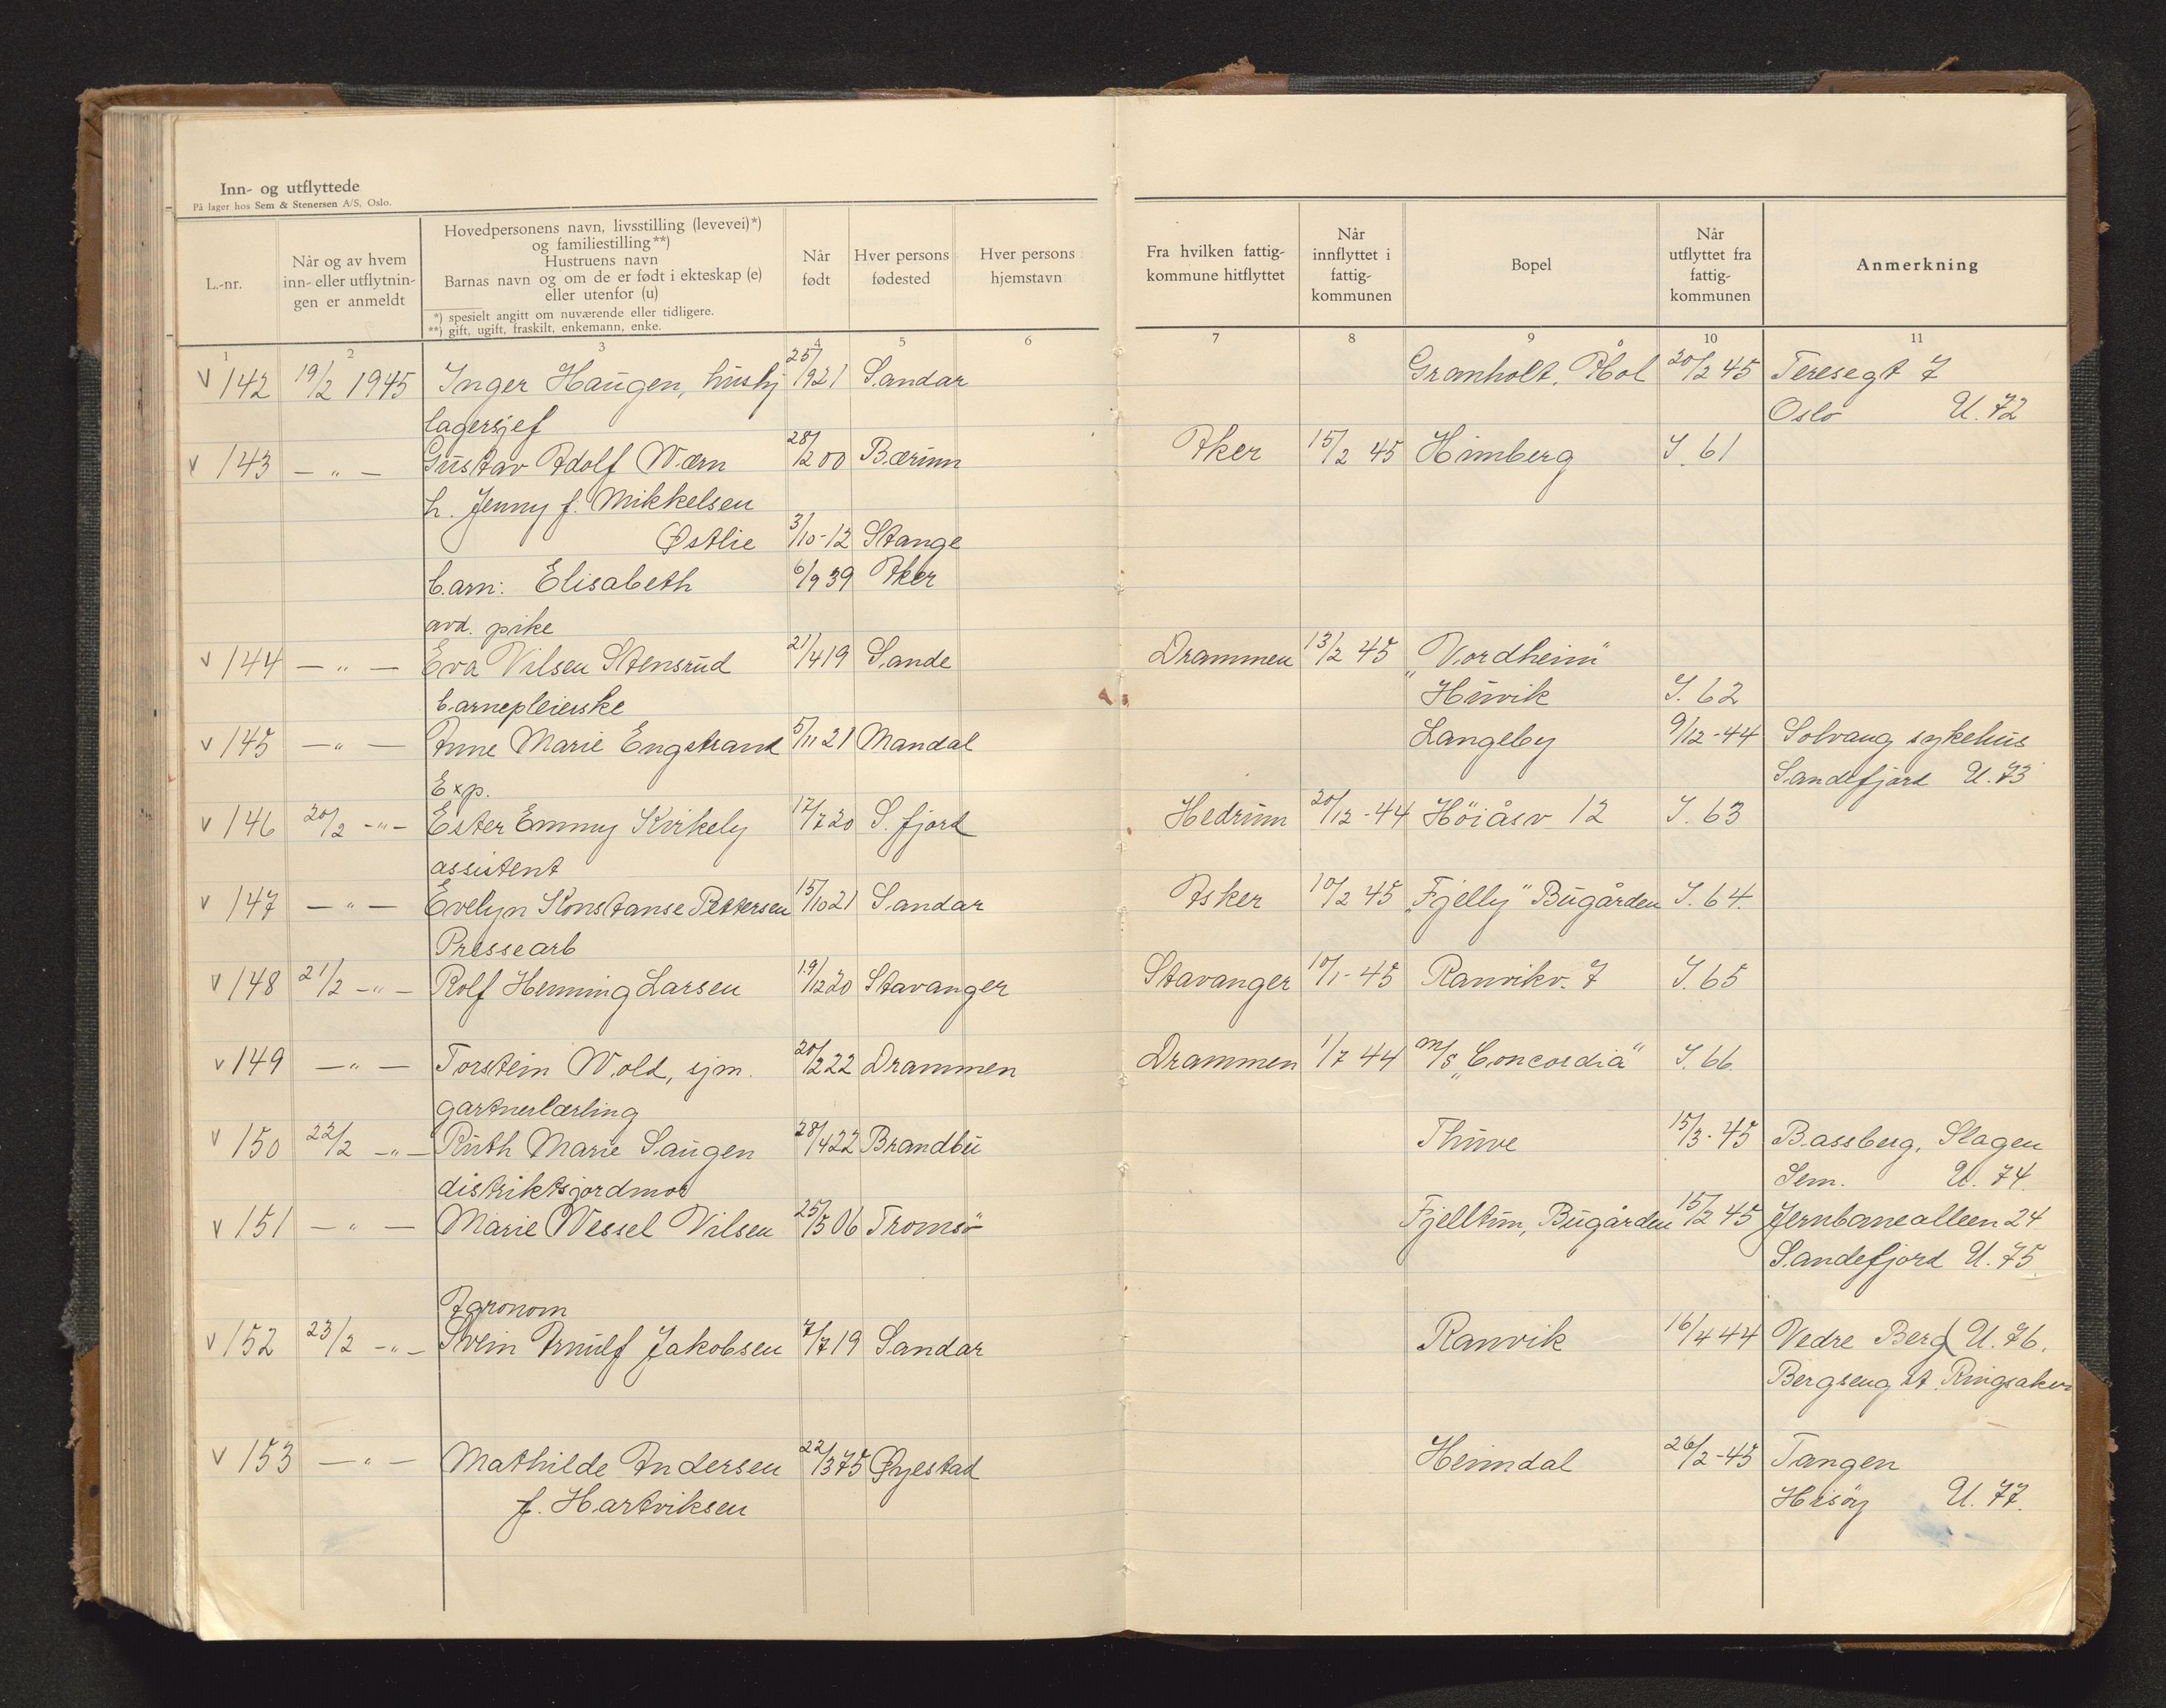 Inn- og utflyttede
På lager hos Sem & Stenersen A/S, Oslo.
L.-nr.
Når og av hvem
inn- eller utflytnin-
gen er anmeldt
Hovedpersonens navn, livsstilling (levevei)*)
og familiestilling**)
Hustruens navn
Barnas navn og om de er født i ekteskap (e)
eller utenfor (u)
*) spesielt angitt om nuværende eller tidligere.
**) gift, ugift, fraskilt, enkemann, enke.
Når
født
Hver persons
fødested
Hver persons
hjemstavn
Fra hvilken fattig-
kommune hitflyttet
Når
innflyttet i
fattig-
kommunen
Bopel
Når
utflyttet fra
fattig-
kommunen
Anmerkning
1 2 3 4 5 6 7 8 9 10 11
v 142 19/2 1945 Inger Haugen, hushj 25/1921 Sandar Granholt, Åbol 20/2 45 Teresegt 7
Oslo U. 72
lagersjef
v 143 — " — Gustav Adolf Wærn 28/2 00 Bærum Aker 15/2 45 Himberg I. 61
h. Jenny f. Mikkelsen
Østlie 3/10-12 Stange
barn: Elisabeth 6/9 39 Aker
avd. pike
v 144 — " — Eva Nilsen Stensrud 21/4 19 Sande Drammen 13/2 45 "Nordheim"
Huvik I. 62
barnepleierske
v 145 — " — Anne Marie Engstrand 5/11 21 Mandal Langeby 9/12-44 Solvang sykehus
Sandefjord U. 73
Exp.
v 146 20/2 -"- Ester Emmy Kirkely 17/7 20 S. fjord Hedrum 20/12-44 Höiåsv 12 I. 63
assistent
v 147 — " — Evelyn Konstanse Pettersen 15/10 21 Sandar Asker 10/2 45 "Fjelly" Bugården I. 64.
Pressearb
v 148 21/2 -"- Rolf Henning Larsen 19/12 20 Stavanger Stavanger 10/1-45 Ranvikv. 7 I. 65
v 149 — " — Torstein Wold, sjm. 20/2 22 Drammen Drammen 1/7 44 m/s "Concordia" I. 66.
gartnerlærling
v 150 22/2 -"- Ruth Marie Haugen 28/4 22 Brandbu Thuve 15/3-45 Bassberg, Slagen
Sem. U. 74.
distriktsjordmor
v 151 — " — Marie Wessel Nilsen 25/5 06 Tromsö Fjelltun, Bugården 15/2 45 Jernbanealleen 24
Sandefjord U. 75
Agronom
v 152 23/2 -"- Svein Arnulf Jakobsen 7/7 19 Sandar Ranvik 16/4 44 Nedre Berg U. 76.
Bergseng st. Ringsaker
v 153 — " — Mathilde Andersen 22/3 75 Øyestad Heimdal 26/2-45 Tangen
f. Hartviksen Hisöy U. 77.